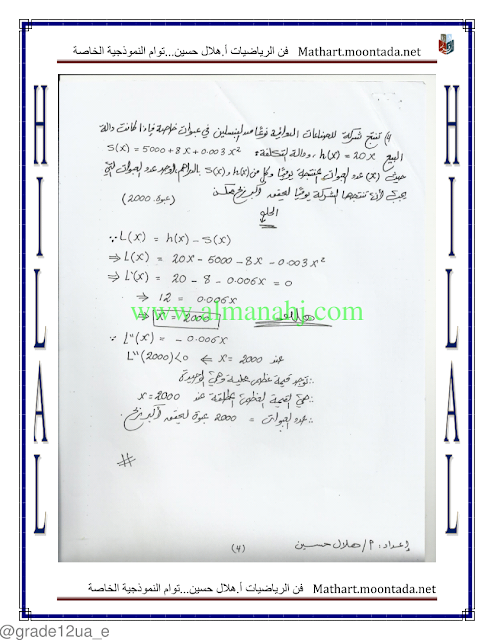 فن الرياضيات أ.هلال حسين...توام النموذجية الخاصة Mathart.moontada.net
HILAL
HILAL
٤) تنتج شركة للصناعات الدوائية نوعًا من البنسلين في عبوات خاصة فإذا كانت دالة
البيع h(x) = 20x ، ودالة التكلفة: S(x) = 5000 + 8x + 0.003x²
حيث (x) عدد العبوات المنتجة يوميًا وكل من h(x) و S(x) بالدراهم أوجد عدد العبوات التي
يجب أن تنتجها الشركة يوميًا لتحقق أكبر ربح ممكن (2000 عبوة)
الحل
∵ L(x) = h(x) - S(x)
⇒ L(x) = 20x - 5000 - 8x - 0.003x²
⇒ L'(x) = 20 - 8 - 0.006x = 0
⇒ 12 = 0.006x
www.almanahj.com
⇒ x = 2000
∵ L''(x) = - 0.006x
L''(2000) < 0 ⇐ x = 2000 عند
∴ توجد قيمة عظمى محلية وهي الوحيدة
∴ هي القيمة العظمى المطلقة عند x = 2000
∴ عدد العبوات = 2000 عبوة لتحقق أكبر ربح.
#
(4)
إعداد: أ/ هلال حسين
فن الرياضيات أ.هلال حسين...توام النموذجية الخاصة Mathart.moontada.net
@grade12ua_e